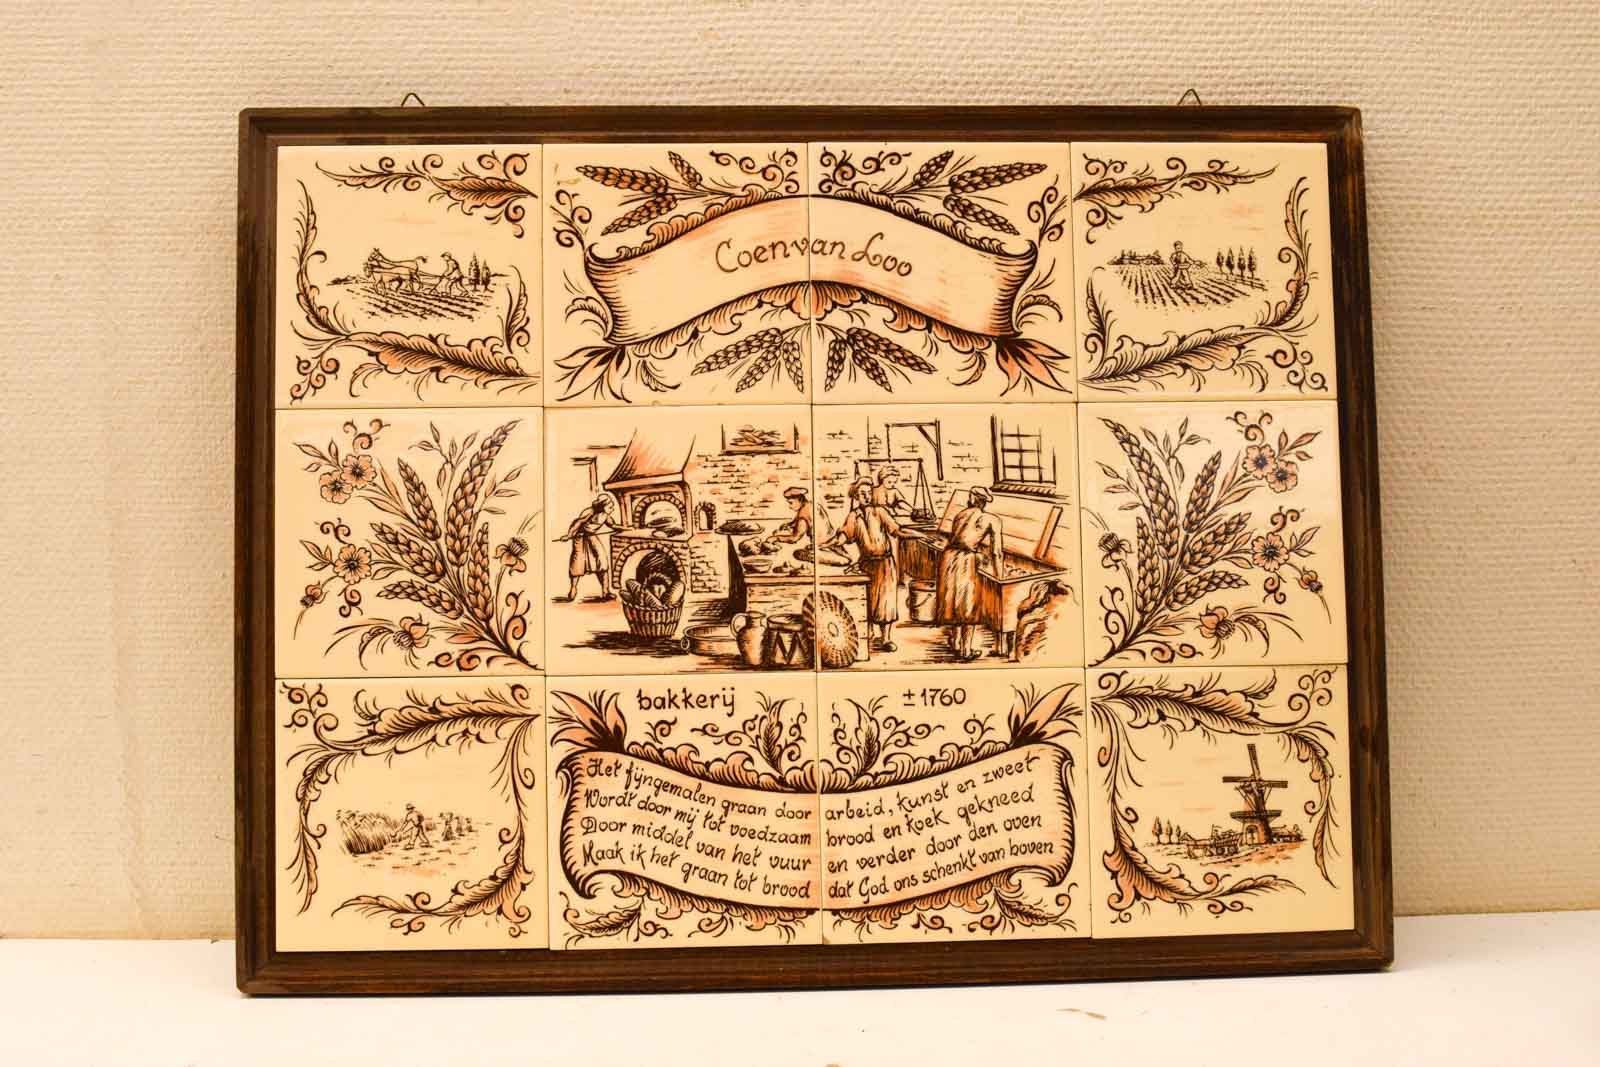 Coen van Loo
bakkerij ± 1760
Het fijngemalen graan door arbeid, kunst en zweet
Wordt door mij tot voedzaam brood en koek gekneed
Door middel van het vuur en verder door den oven
Maak ik het graan tot brood dat God ons schenkt van boven